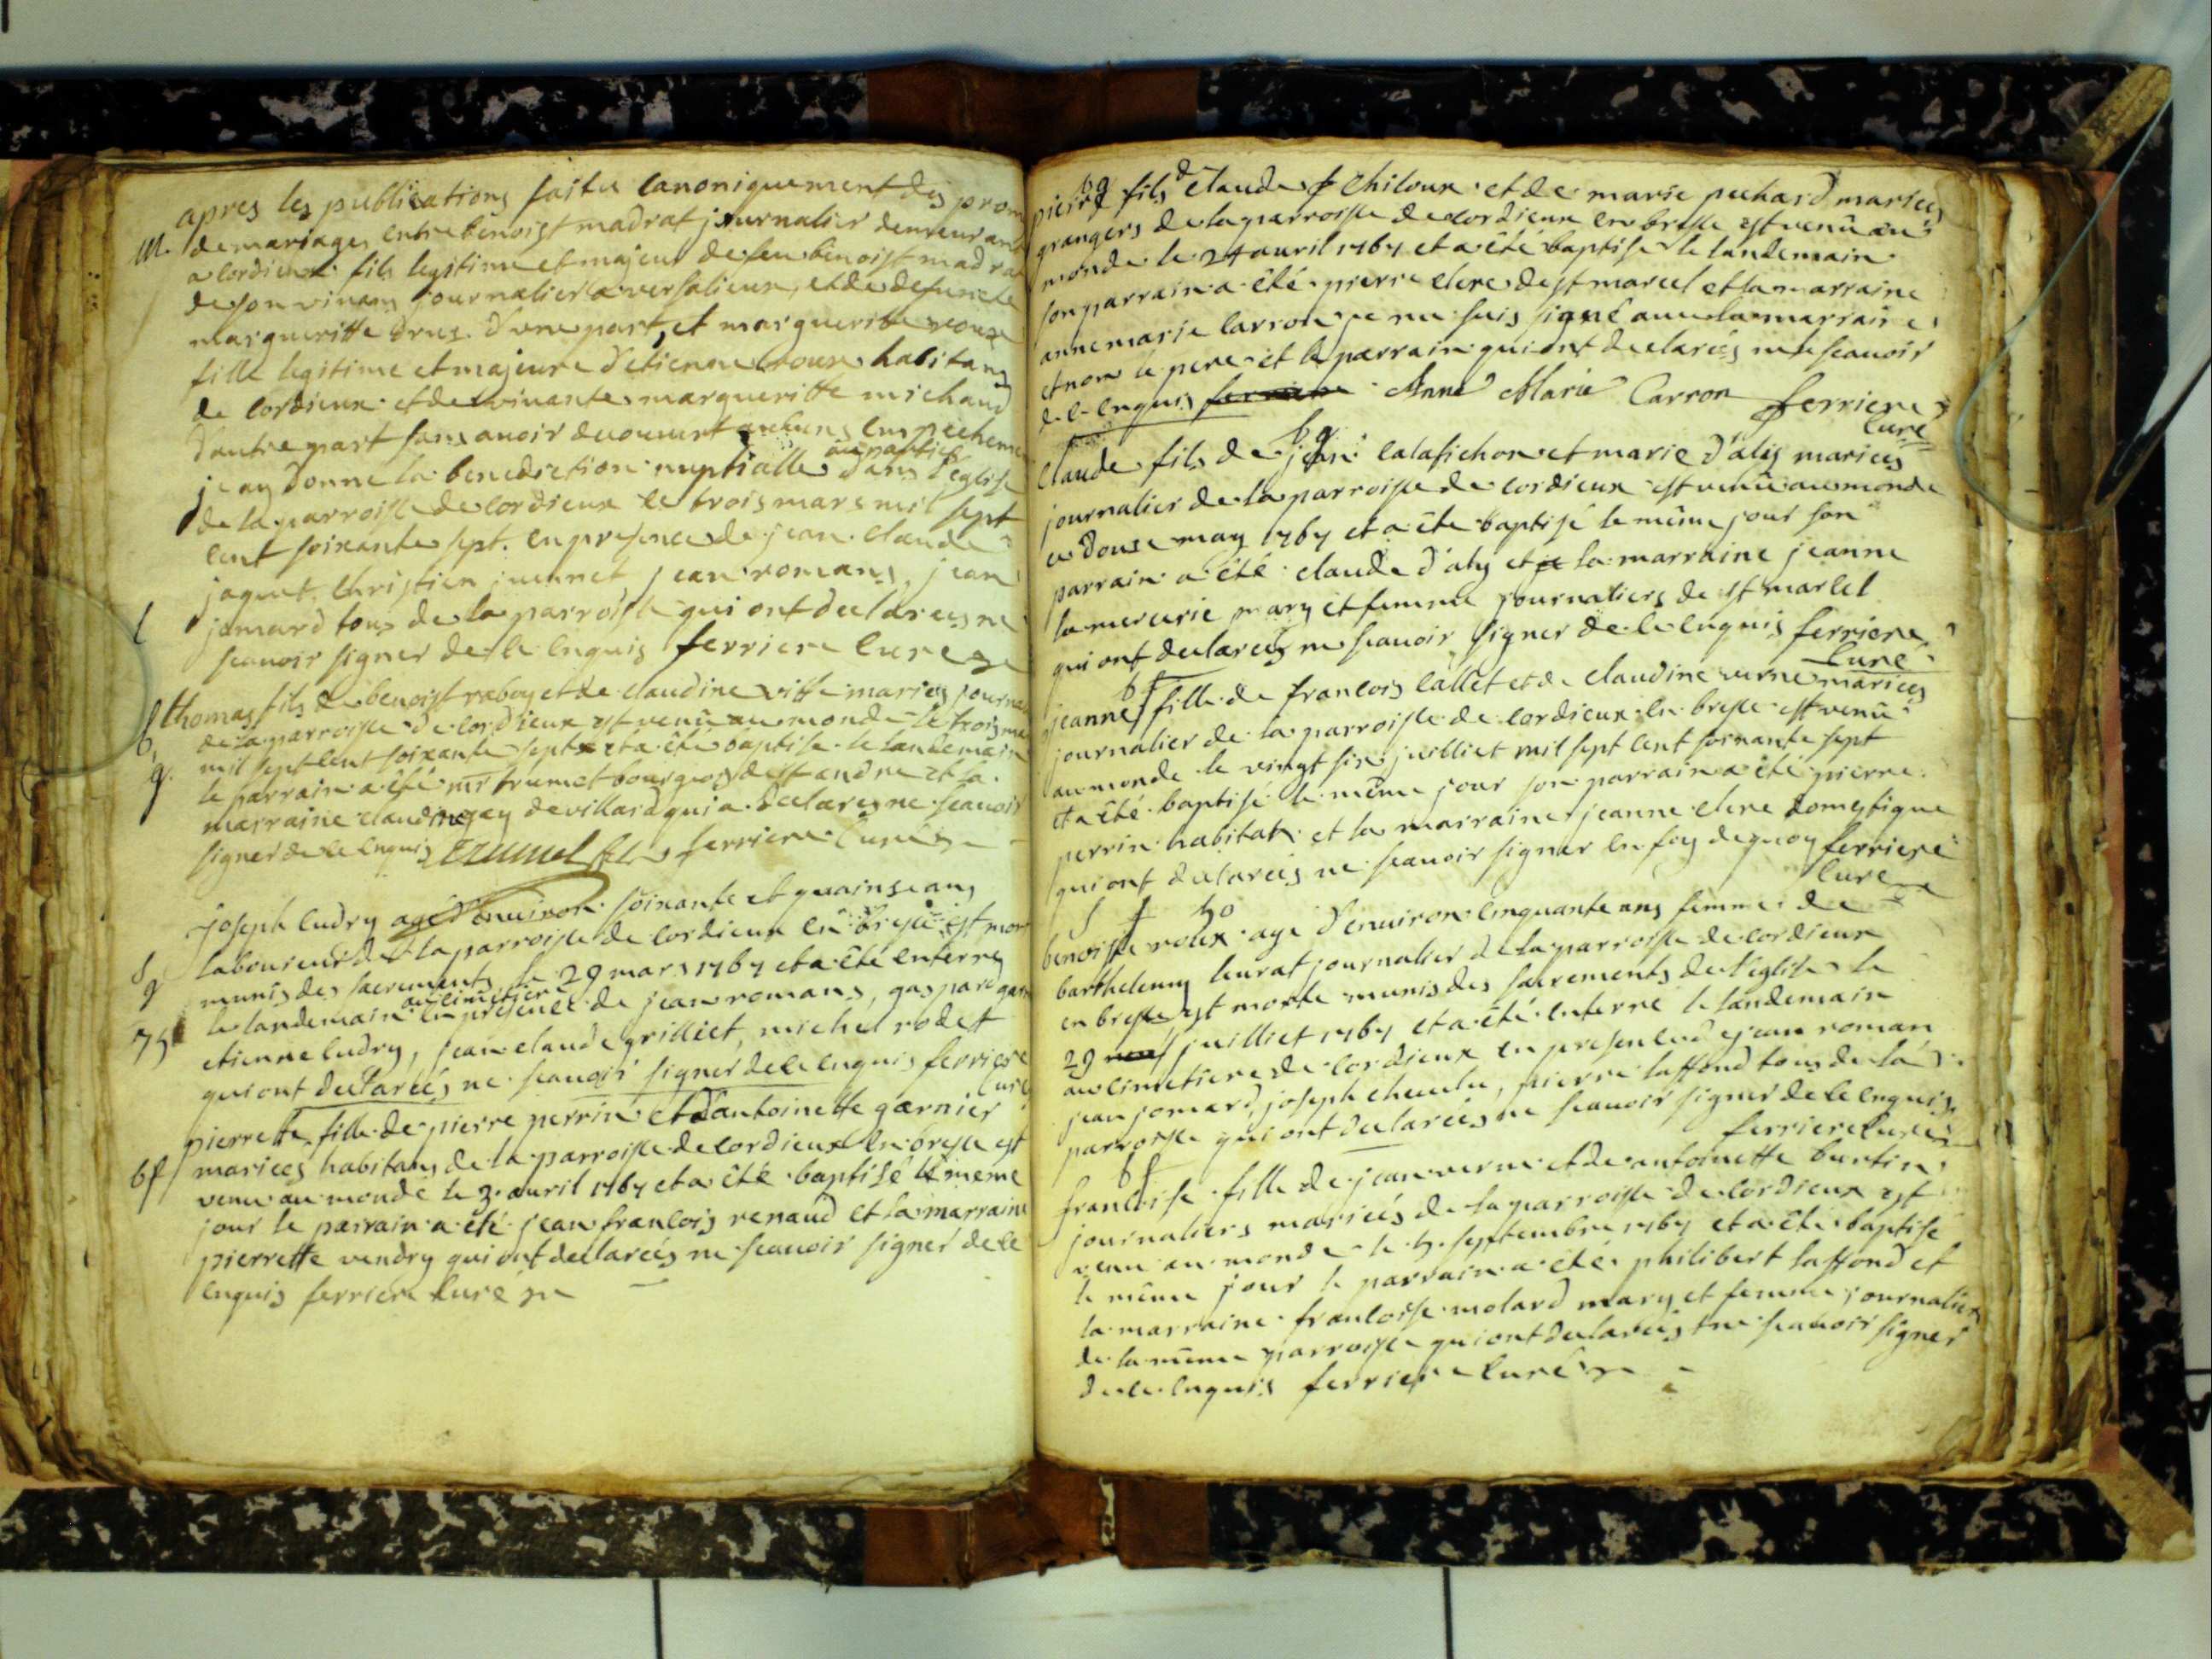 apres les publications faitte canoniquement des prom
m. de mariages entre benoist madrat journalier demeurant
a cordieux fils legitime et majeur de feu benoist madra
de son vivans journalier a versalieux, et de defuncte
margueritte drus d'une part, et margueritte roux
fille legitime et majeure d'etienne roux habitans
de cordieux et de vivante margueritte michaud
d'autre part sans avoir decouvert aucuns empechemen
jeay donné la benediction nuptialle aux parties dans l'eglise
de la parroisse de cordieux le trois mars mil sept
cent soixante sept. en presence de jean claude
jaquet, christien juennet jean romans, jean
jomard tous de la parroisse qui ont declareés ne
scavoir signer de ce enquis ferriere curé
thomas fils de benoist raboy et de claudine viffe mariés journa
de la parroisse de cordieux est venû au monde le trois ma
b. mil sept cent soixante sept et a êté baptisé le landemain
g. le parrain a êté mr trumet bourgeois de st andré et la
marraine claudine jay de villard qui a declareé ne scavoir
signer de ce enquis Trumel fils ferriere curé
joseph cudry agé d'environ soixante et quainse ans
laboureur de la parroisse de cordieux en bresse est mor
s g munis des sacrements le 29 mars 1767 et a êté enterré
le landemain au cimetiere en presence de jean romans, gaspard gar
75 etienne cudry, jean claude grilliet, michel rodet
qui ont declareés ne scavoir signer de ce enquis ferriere
curé
pierrette fille de pierre perrin et d'antoinette garnier
bf mariees habitans de la parroisse de cordieux en bresse est
venu au monde le 3 avril 1767 et a êté baptisé le meme
jour le parrain a êté jean francois renaud et la marraine
pierrette vendry qui ont declareés ne scavoir signer de ce
enquis ferriere curé
bg
pierre fils de claude chiloux et de marie puchard mariees
grangers de la parroisse de cordieux en bresse est venû au
monde le 24 avril 1767 et a êté baptisé le landemain
son parrain a êté pierre clerc de st marcel et la marraine
anne marie carron je me suis signé avec la marraine
et non le pere et le parrain qui ont declareés ne scavoir
de ce enquis Anne Marie Carron ferriere
curé
bg
claude fils de jean calasichon et marie d'alis mariees
journalier de la parroisse de cordieux est venû au monde
ce douse may 1767 et a êté baptisé le même jour son
parrain a êté claude d'aly et la marraine jeanne
la mercerie mary et femme journaliers de st marcel
qui ont declareés ne scavoir signer de ce enquis ferriere
curé
bf
jeanne fille de francois callet et de claudine verne mariees
journalier de la parroisse de cordieux en bresse est venû
au monde le vingt six juilliet mil sept cent soixante sept
et a êté baptisé le même jour son parrain a êté pierre
perrin habitan et la marraine jeanne clerc domestique
qui ont declareés ne scavoir signer en foy de quoy ferriere
curé
s f 50
benoiste roux age d'environ cinquante ans femme de
barthelemy curat journalier de la parroisse de cordieux
en bresse est morte munis des sacrements de l'eglise le
29 juilliet 1767 et a êté enterré le landemain
au cimetiere de cordieux en presence de jean roman
jean jomard, joseph chevelu, pierre laffond tous de la
parroisse qui ont declareés ne scavoir signer de ce enquis
ferriere curé
bf
francoise fille de jean verne et de antoinette burtin
journaliers mariees de la parroisse de cordieux est
venu au monde le 5 septembre 1767 et a êté baptisé
le même jour le parrain a êté philibert laffond et
la marraine francoise molard mary et femme journaliers
de la même parroisse qui ont declareés ne scavoir signer
de ce enquis ferriere curé